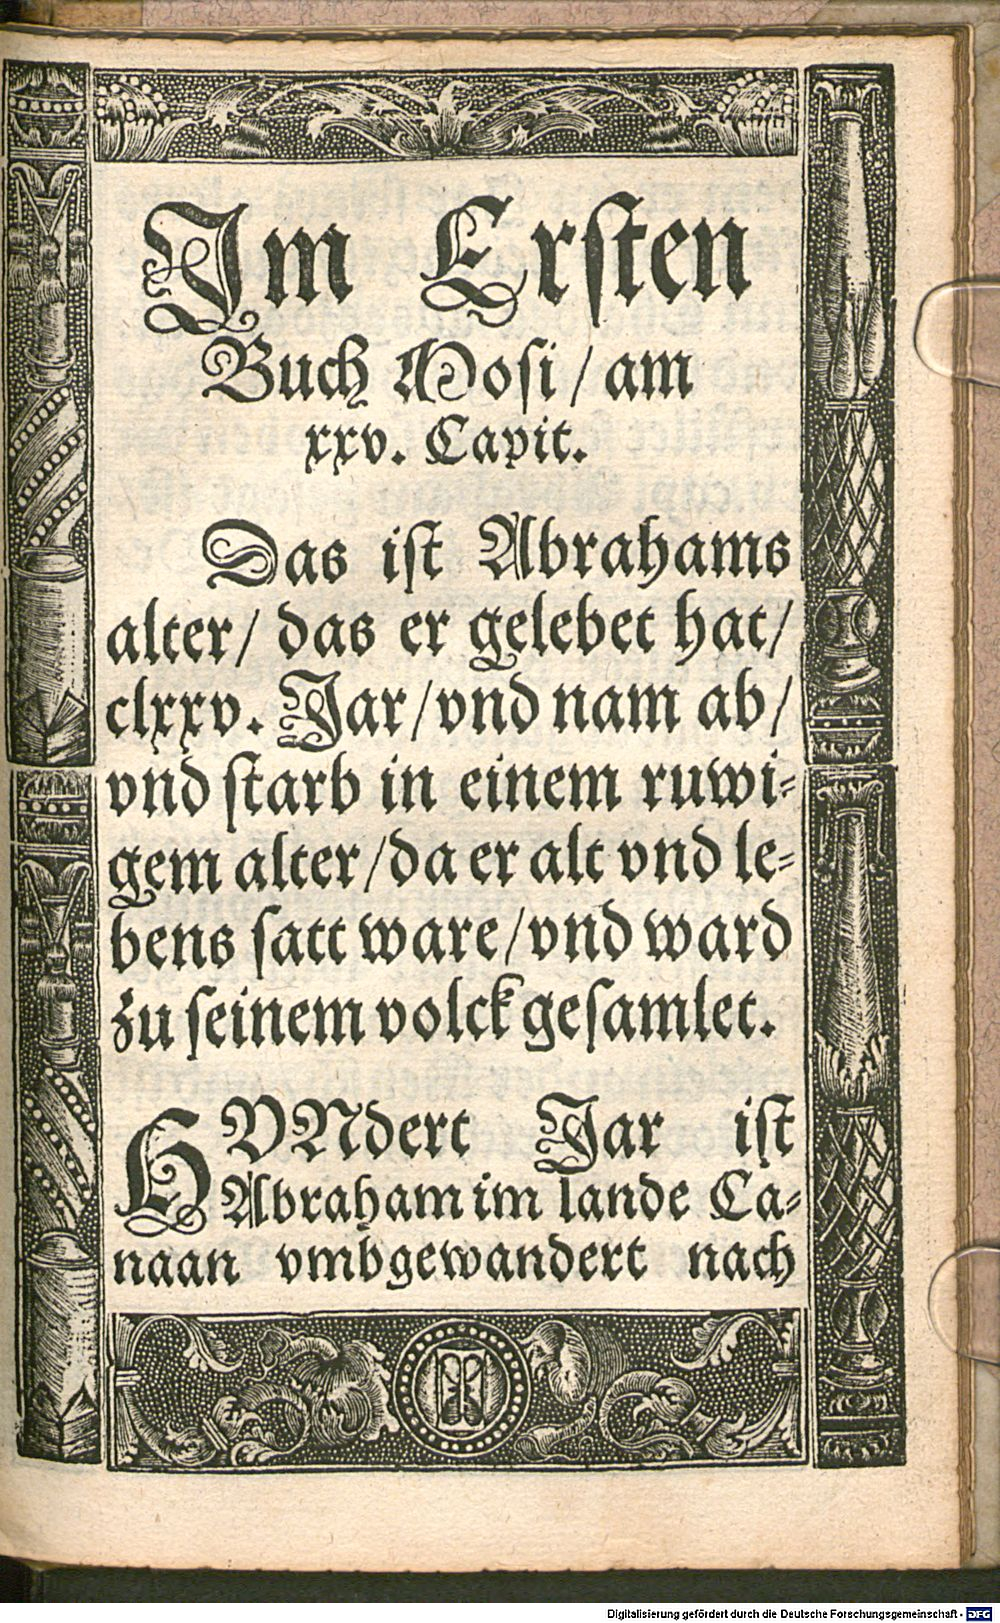 Im Ersten
Buch Mosi / am
xxv. Capit.
Das ist Abrahams
alter / das er gelebet hat /
clxxv. Jar / vnd nam ab /
vnd starb in einem ruwi-
gem alter / da er alt vnd le-
bens satt ware / vnd ward
zu seinem volck gesamlet.
HVNdert Jar ist
Abraham im lande Ca-
naan vmbgewandert nach
Digitalisierung gefördert durch die Deutsche Forschungsgemeinschaft - DFG